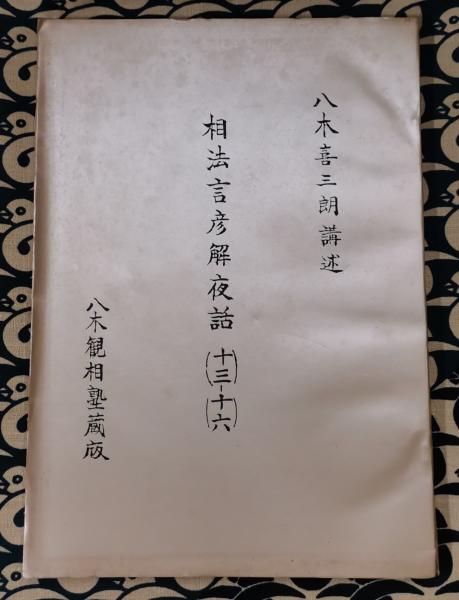 八木喜三朗講述
相法言彦解夜話 (十三-十六)
八木観相塾蔵版